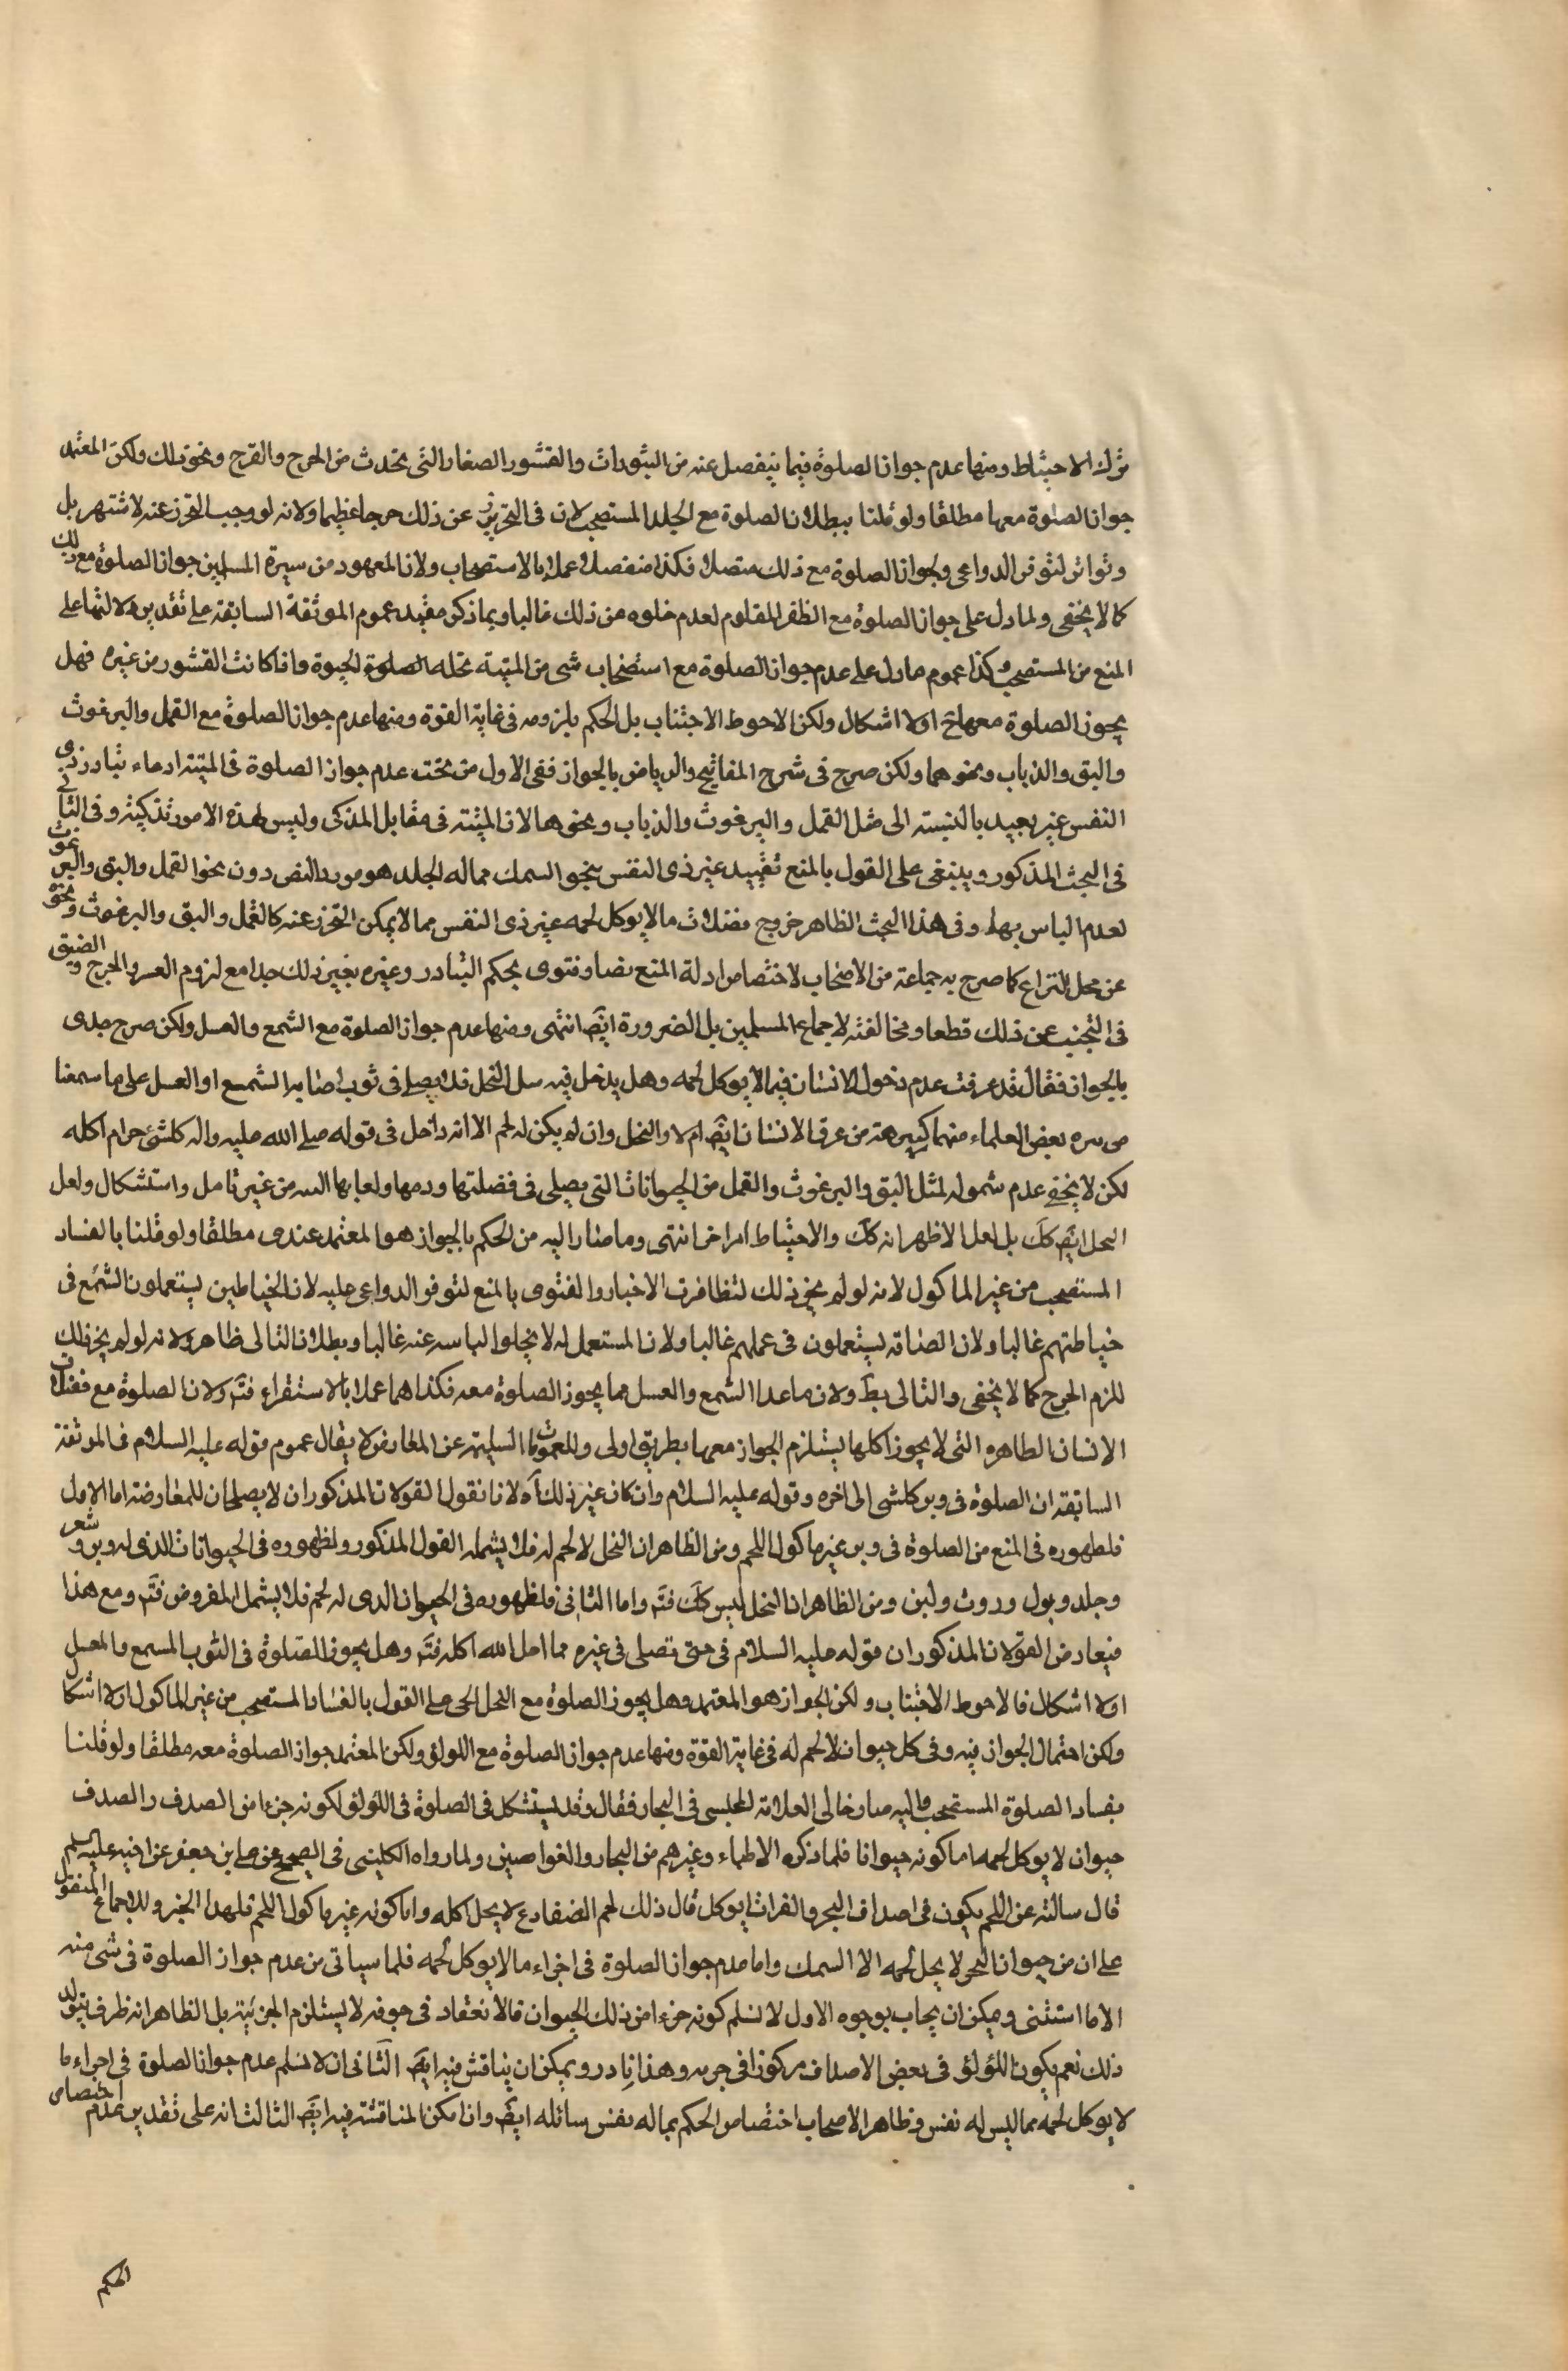 ترك الاحتياط ومنها عدم جواز الصلوة فيما ينفصل عنه من البثورات والقشور الصغار التي تحدث من الجرح والقرح ونحو ذلك ولكن المعتمد
جواز الصلوة معها مطلقا ولو قلنا ببطلان الصلوة مع الجلد المستصحب لان في التحرز عن ذلك حرجا عظيما ولانه لو وجب التحرز عنه لاشتهر بل
وتواتر لتوفر الدواعي ولجواز الصلوة مع ذلك متصلا فكذا منفصلا عملا بالاستصحاب ولان المعهود من سيرة المسلمين جواز الصلوة مع ذلك
كما لا يخفى ولما دل على جواز الصلوة مع الظفر المقلوم لعدم خلوه من ذلك غالبا وبما ذكر مقيد عموم الموثقة السابقة على تقدير دلالتها على
المنع من المستصحب وكذا عموم ما دل على عدم جواز الصلوة مع استصحاب شي من الميتة تحله الحيوة واذا كانت القشور من غيره فهل
يجوز الصلوة معها ح او لا اشكال ولكن الاحوط الاجتناب بل الحكم بلزومه في غاية القوة ومنها عدم جواز الصلوة مع القمل والبرغوث
والبق والذباب ونحوهما ولكن صرح في شرح المفاتيح والرياض بالجواز ففي الاول من تحت عدم جواز الصلوة في الميتة ادعاء تبادر ذي
النفس غير بعيد بالنسبة الى مثل القمل والبرغوث والذباب ونحوها لان الميتة في مقابل المذكى وليس لهذه الامور تذكية وفي الثاني
في البحث المذكور وينبغي على القول بالمنع تقييد غير ذي النفس بنحو السمك مما له الجلد هو مورد النص دون نحو القمل والبق والبرغوث
لعدم الباس بها وفي هذا البحث الظاهر خروج فضلات ما لا يوكل لحمه غير ذي النفس مما لا يمكن التحرز عنه كالقمل والبق والبرغوث ونحو
عن محل النزاع كما صرح به جماعة من الاصحاب لاختصاص ادلة المنع نصا وفتوى بحكم التبادر وغيره بغير ذلك جدا مع لزوم العسر والحرج والضيق
في التجنب عن ذلك قطعا ومخالفته لاجماع المسلمين بل الضرورة ايضَ انتهى ومنها عدم جواز الصلوة مع الشمع والعسل ولكن صرح جدى
بالجواز فقال قد عرفت عدم دخول الانسان فيما لا يوكل لحمه وهل يدخل فيه مثل النحل فلا يصلى في ثوب اصابه الشمع او العسل على ما سمعنا
من بعض العلماء منهما كريهته من عرق الانسان ايضَ ام لا والنحل وان لم يكن له لحم الا انه داخل في قوله صلى الله عليه واله كلشئ حرام اكله
لكن لا يخفى عدم شموله لمثل البق والبرغوث والقمل من الحيوانات التي يصلى في فضلتها ودمها ولعابها من غير تامل واستشكال ولعل
النحل ايضَ كلَ بل لعل الاظهر انه كلَ والاحتياط امر اخر انتهى وما صار اليه من الحكم بالجواز هو المعتمد عندى مطلقا ولو قلنا بالفساد
المستصحب من غير الماكول لانه لو لم يجز ذلك لتظافرت الاخبار والفتوى بالمنع لتوفر الدواعي عليه لان الخياطين يستعملون الشمع في
خياطتهم غالبا ولان الصناقة يستعملون في عملهم غالبا ولان المستعمل له لا يخلو لباسه عنه غالبا وبطلان التالى ظاهر ولانه لو لم يجز ذلك
للزم الحرج كما لا يخفى والتالى بطَ ولان ما عدا الشمع والعسل مما يجوز الصلوة معه فكذا هما عملا بالاستقراء فتَم ولان الصلوة مع فضلات
الانسان الطاهره التي لا يجوز اكلها يستلزم الجواز معها بطريق اولى وللعمومات السليمة عن المعارض لا يقال عموم قوله عليه السلام في الموثقة
السابقة ان الصلوة في وبر كلشي الى اخره وقوله عليه السلام وان كان غير ذلك آه لانا نقول القولان المذكوران لا يصلحان للمعارضة اما الاول
فلظهوره في المنع من الصلوة في وبر غير ماكول اللحم ومن الظاهر ان النحل لا لحم له فلا يشمله القول المذكور ولظهوره في الحيوانات الذى له وبر وشعر
وجلد وبول وروث ولبن ومن الظاهر ان النحل ليس كلَ فتَم واما الثاني فلظهوره في الحيوان الذى له لحم فلا يشمل المفروض فتَم ومع هذا
فيعارض القولان المذكوران قوله عليه السلام في حتى تصلى في غيره مما احل الله اكله فتَم وهل يجوز الصلوة في الثوب المسمع والمعسل
او لا اشكال فالاحوط الاجتناب ولكن الجواز هو المعتمد وهل يجوز الصلوة مع النحل الحى على القول بالفساد المستصحب من غير الماكول او لا اشكال
ولكن احتمال الجواز فيه وفي كل حيوان لا لحم له في غاية القوة ومنها عدم جواز الصلوة مع اللولؤ ولكن المعتمد جواز الصلوة معه مطلقا ولو قلنا
بفساد الصلوة المستصحب واليه صار خالى العلامة المجلسى في البحار فقال وقد يستشكل في الصلوة في اللؤلؤ لكونه جزءا من الصدف والصدف
حيوان لا يوكل لحمه اما كونه حيوانا فلما ذكره الاطباء وغيرهم من التجار والغواصين ولما رواه الكليني في الصحيح عن على بن جعفر عن اخيه عليه السلم
قال سالته عن اللحم يكون في اصداف البحر والفرات ايوكل قال ذلك لحم الضفادع لا يحل اكله واما كونه غير ماكول اللحم فلهذا الخبر وللاجماع المنقول
على ان من حيوان البحر لا يحل لحمه الا السمك واما عدم جواز الصلوة في اجزاء ما لا يوكل لحمه فلما سياتى من عدم جواز الصلوة في شى منه
الا ما استثنى ويمكن ان يجاب بوجوه الاول لا نسلم كونه جزءا من ذلك الحيوان فالانعقاد في جوفه لا يستلزم الجزئية بل الظاهر انه ظرف يتولد
ذلك نعم يكون اللؤلؤ في بعض الاصداف مركوزا في جرمه وهذا نادر ويمكن ان يناقش فيه ايضَ الثانى ان لا نسلم عدم جواز الصلوة في اجزاء ما
لا يوكل لحمه مما ليس له نفس وظاهر الاصحاب اختصاص الحكم بما له نفس سائله ايضَ وان امكن المناقشة فيه ايضَ الثالث انه على تقدير عدم اختصاص
الحكم